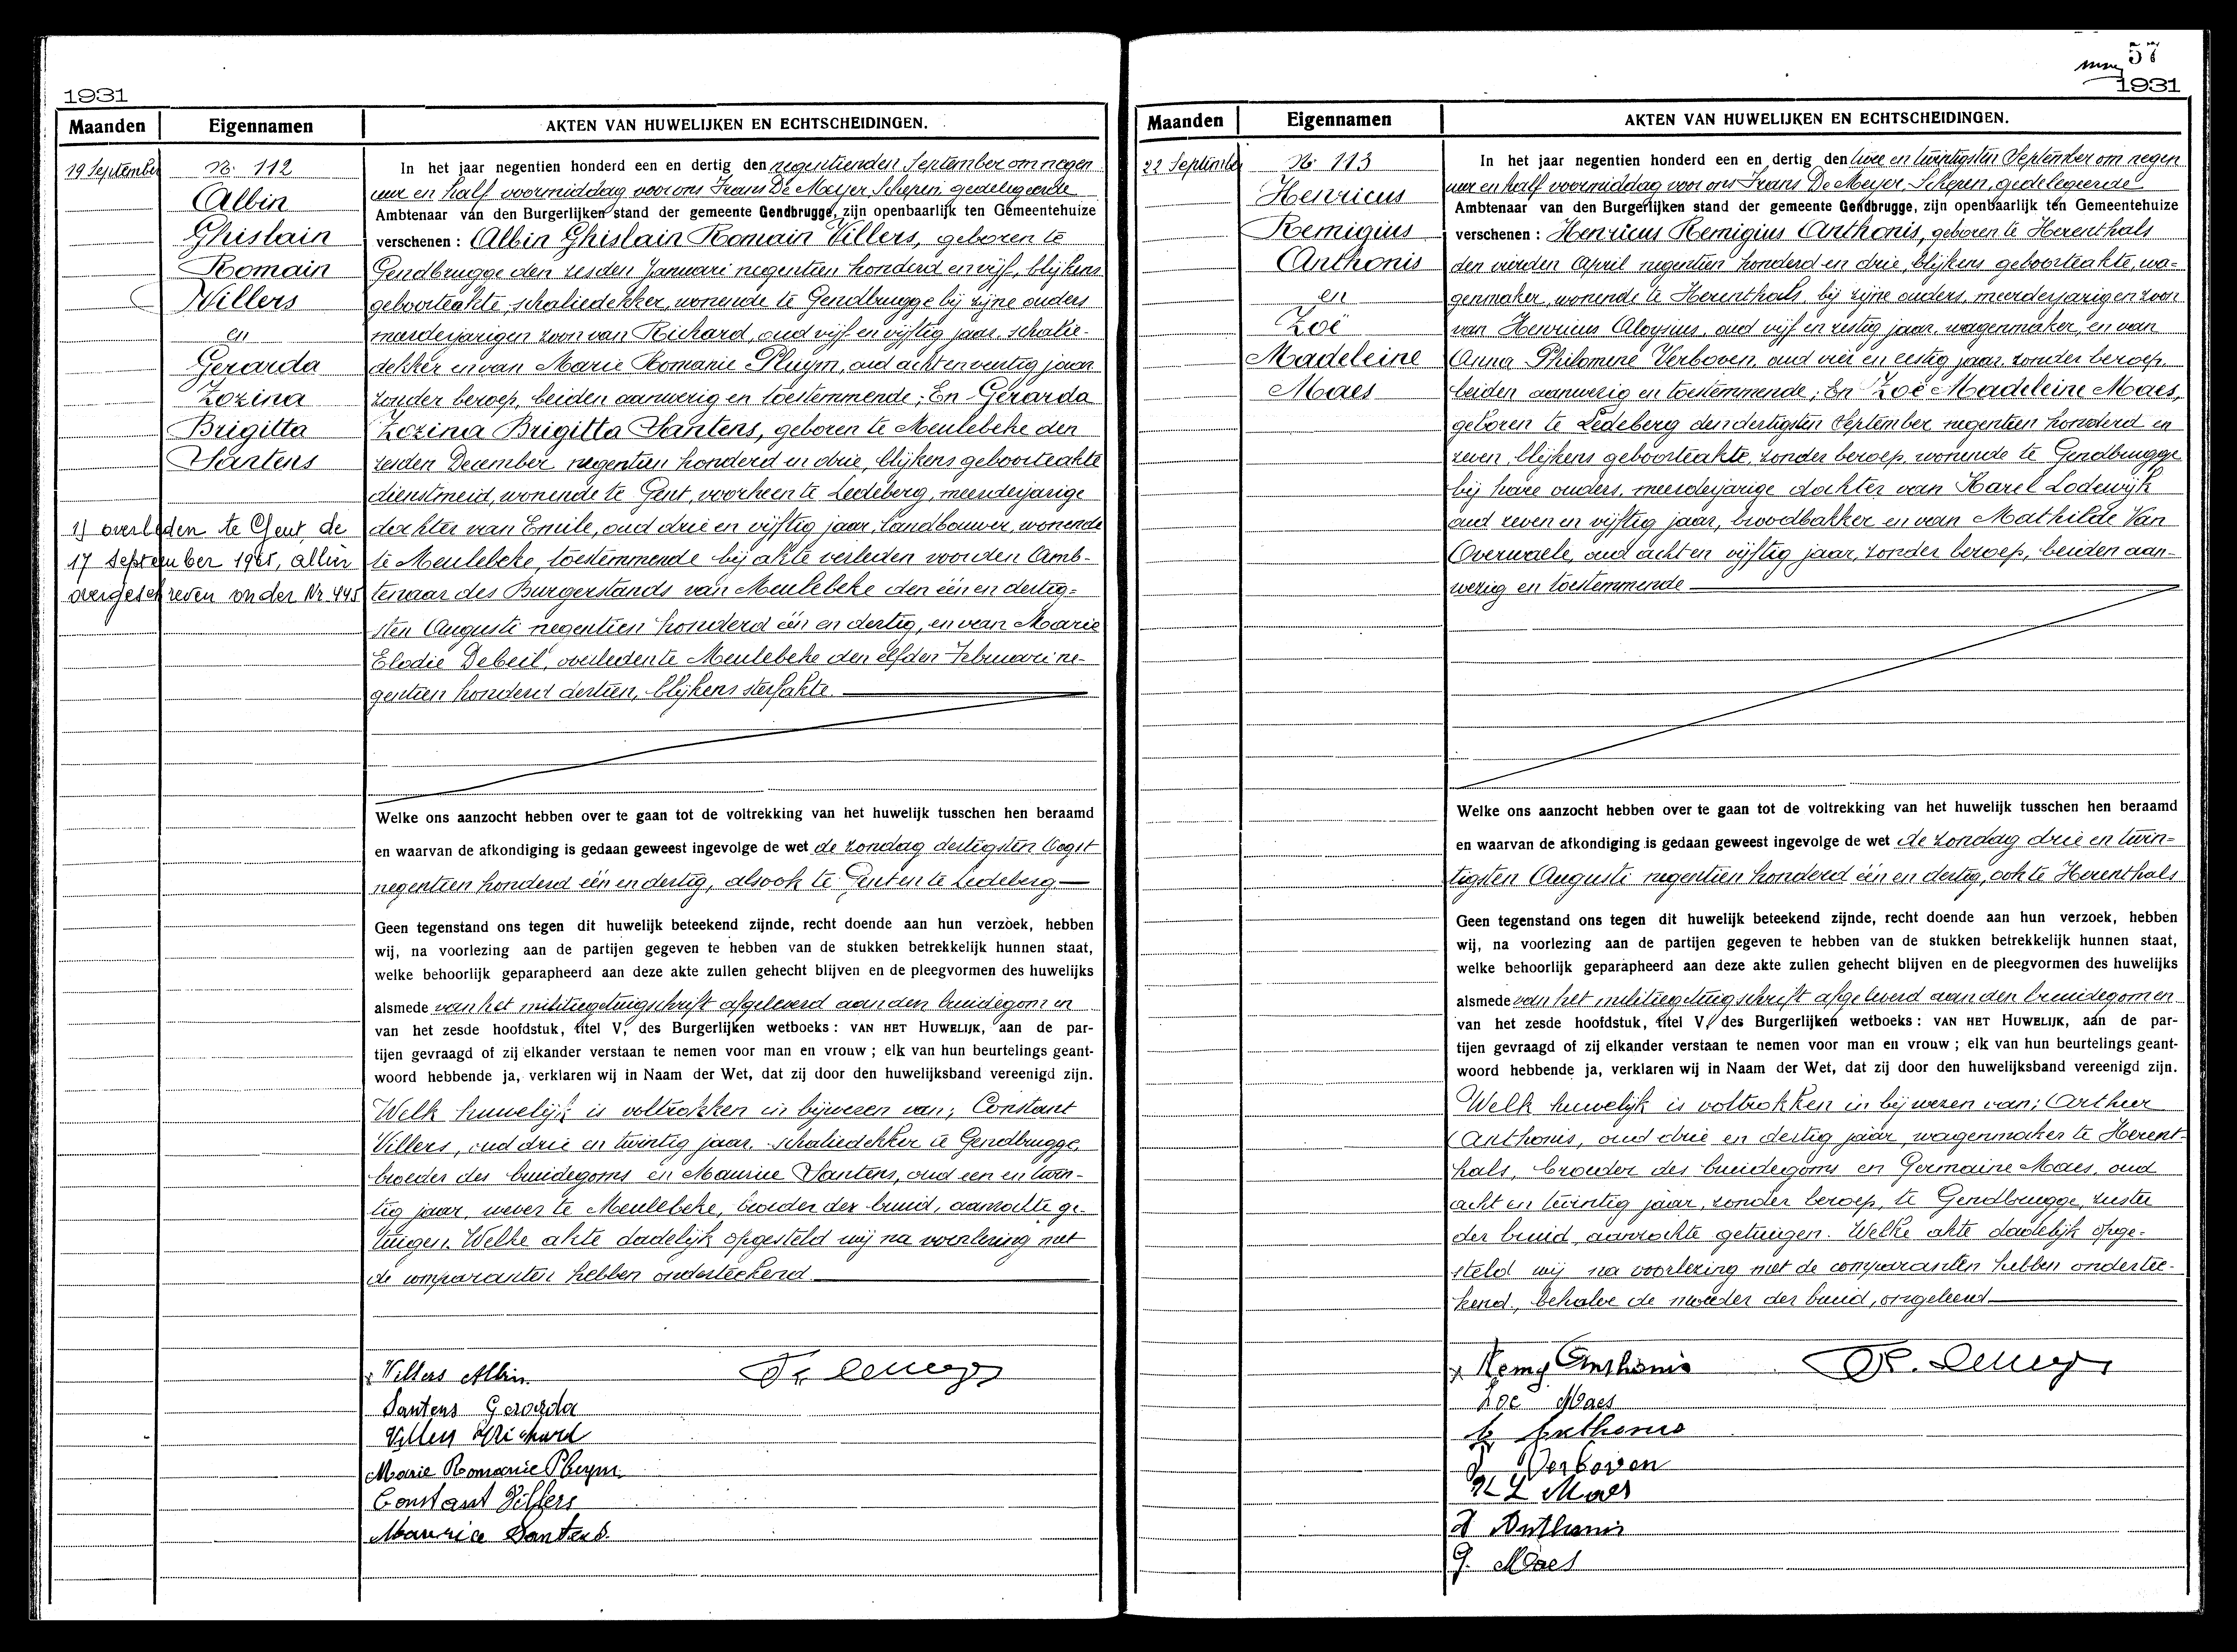 1931
Maanden
Eigennamen
AKTEN VAN HUWELIJKEN EN ECHTSCHEIDINGEN.
19 September
No. 112
Albin
Ghislain
Romain
Villers
en
Gerarda
Zozina
Brigitta
Santens
1) overleden te Gent, de
17 september 1965, alhier
overgeschreven onder Nr 445
In het jaar negentien honderd een en dertig den negentienden September om negen
uur en half voormiddag voor ons Frans De Meyer, Schepen, gedelegeerde
Ambtenaar van den Burgerlijken stand der gemeente Gendbrugge, zijn openbaarlijk ten Gemeentehuize
verschenen : Albin Ghislain Romain Villers, geboren te
Gendbrugge den zesden Januari negentien honderd en vijf, blijkens
geboorteakte, schaliedekker, wonende te Gendbrugge bij zijne ouders
meerderjarigen zoon van Richard, oud vijf en vijftig jaar, schalie-
dekker en van Marie Romanie Pluym, oud acht en veertig jaar
zonder beroep, beiden aanwezig en toestemmende; En Gerarda
Zozina Brigitta Santens, geboren te Meulebeke den
zesden December negentien honderd en drie, blijkens geboorteakte
dienstmeid, wonende te Gent, voorheen te Ledeberg, meerderjarige
dochter van Emile, oud drie en vijftig jaar, landbouwer, wonende
te Meulebeke, toestemmende bij akte verleden voor den Amb-
tenaar des Burgerstands van Meulebeke den één en dertig-
sten Augusti negentien honderd één en dertig, en van Marie
Elodie Debeil, overleden te Meulebeke den elfden Februari ne-
gentien honderd dertien, blijkens sterfakte.
Welke ons aanzocht hebben over te gaan tot de voltrekking van het huwelijk tusschen hen beraamd
en waarvan de afkondiging is gedaan geweest ingevolge de wet de zondag dertigsten Oogst
negentien honderd één en dertig, alsook te Gent en te Ledeberg
Geen tegenstand ons tegen dit huwelijk beteekend zijnde, recht doende aan hun verzoek, hebben
wij, na voorlezing aan de partijen gegeven te hebben van de stukken betrekkelijk hunnen staat,
welke behoorlijk geparapheerd aan deze akte zullen gehecht blijven en de pleegvormen des huwelijks
alsmede van het militiegetuigschrift afgeleverd aan den bruidegom en
van het zesde hoofdstuk, titel V, des Burgerlijken wetboeks : VAN HET HUWELIJK, aan de par-
tijen gevraagd of zij elkander verstaan te nemen voor man en vrouw ; elk van hun beurtelings geant-
woord hebbende ja, verklaren wij in Naam der Wet, dat zij door den huwelijksband vereenigd zijn.
Welk huwelijk is voltrokken in bijwezen van; Constant
Villers, oud drie en twintig jaar, schaliedekker te Gendbrugge,
broeder des bruidegoms en Maurice Santens, oud een en twin-
tig jaar, wever te Meulebeke, broeder der bruid, aanzochte ge-
tuigen. Welke akte dadelijk opgesteld wij na voorlezing met
de comparanten hebben onderteekend
Villers Albin.
Santens Gerarda
Villers Richard
Marie Romanie Pluym.
Constant Villers
Maurice Santens.
Fr. Demeyer
57
1931
Maanden
Eigennamen
AKTEN VAN HUWELIJKEN EN ECHTSCHEIDINGEN.
22 September
No. 113
Henricus
Remigius
Anthonis
en
Zoë
Madeleine
Maes
In het jaar negentien honderd een en dertig den twee en twintigsten September om negen
uur en half voormiddag voor ons Frans De Meyer, Schepen, gedelegeerde
Ambtenaar van den Burgerlijken stand der gemeente Gendbrugge, zijn openbaarlijk ten Gemeentehuize
verschenen : Henricus Remigius Anthonis, geboren te Herenthals
den vierden April negentien honderd en drie, blijkens geboorteakte, wa-
genmaker, wonende te Herenthals, bij zijne ouders, meerderjarigen zoon
van Henricus Aloysius, oud vijf en zestig jaar, wagenmaker, en van
Anna Philomene Verboven, oud vier en zestig jaar, zonder beroep,
beiden aanwezig en toestemmende; En Zoë Madeleine Maes,
geboren te Ledeberg den dertigsten September negentien honderd en
zeven, blijkens geboorteakte, zonder beroep, wonende te Gendbrugge
bij hare ouders, meerderjarige dochter van Karel Lodewijk
oud zeven en vijftig jaar, broodbakker en van Mathilde Van
Overwaele, oud acht en vijftig jaar, zonder beroep, beiden aan-
wezig en toestemmende
Welke ons aanzocht hebben over te gaan tot de voltrekking van het huwelijk tusschen hen beraamd
en waarvan de afkondiging is gedaan geweest ingevolge de wet de zondag drie en twin-
tigsten Augusti negentien honderd één en dertig, ook te Herenthals
Geen tegenstand ons tegen dit huwelijk beteekend zijnde, recht doende aan hun verzoek, hebben
wij, na voorlezing aan de partijen gegeven te hebben van de stukken betrekkelijk hunnen staat,
welke behoorlijk geparapheerd aan deze akte zullen gehecht blijven en de pleegvormen des huwelijks
alsmede van het militiegetuigschrift afgeleverd aan den bruidegom en
van het zesde hoofdstuk, titel V, des Burgerlijken wetboeks : VAN HET HUWELIJK, aan de par-
tijen gevraagd of zij elkander verstaan te nemen voor man en vrouw ; elk van hun beurtelings geant-
woord hebbende ja, verklaren wij in Naam der Wet, dat zij door den huwelijksband vereenigd zijn.
Welk huwelijk is voltrokken in bijwezen van; Arthur
Anthonis, oud drie en dertig jaar, wagenmaker te Herent-
hals, broeder des bruidegoms en Germaine Maes, oud
acht en twintig jaar, zonder beroep, te Gendbrugge, zuster
der bruid, aanzochte getuigen. Welke akte dadelijk opge-
steld wij na voorlezing met de comparanten hebben ondertee-
kend, behalve de moeder der bruid, ongeleerd
Remy Anthonis
Zoë Maes
Anthonis
Verboven
K L Maes
A Anthonis
G. Maes
Fr. Demeyer